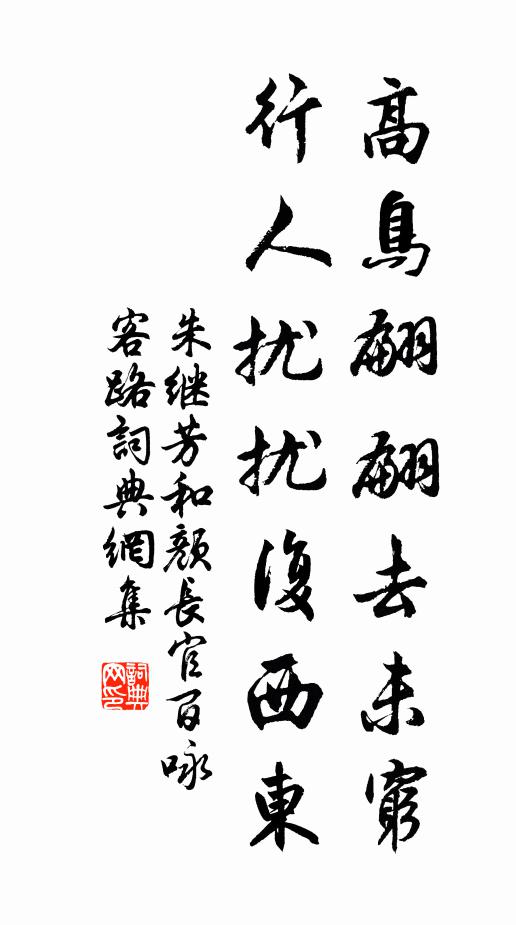 高鳥翩翩去未窮
行人扰扰復西東
朱继芳和顏長官百咏
客路詞典網集
詞典网印